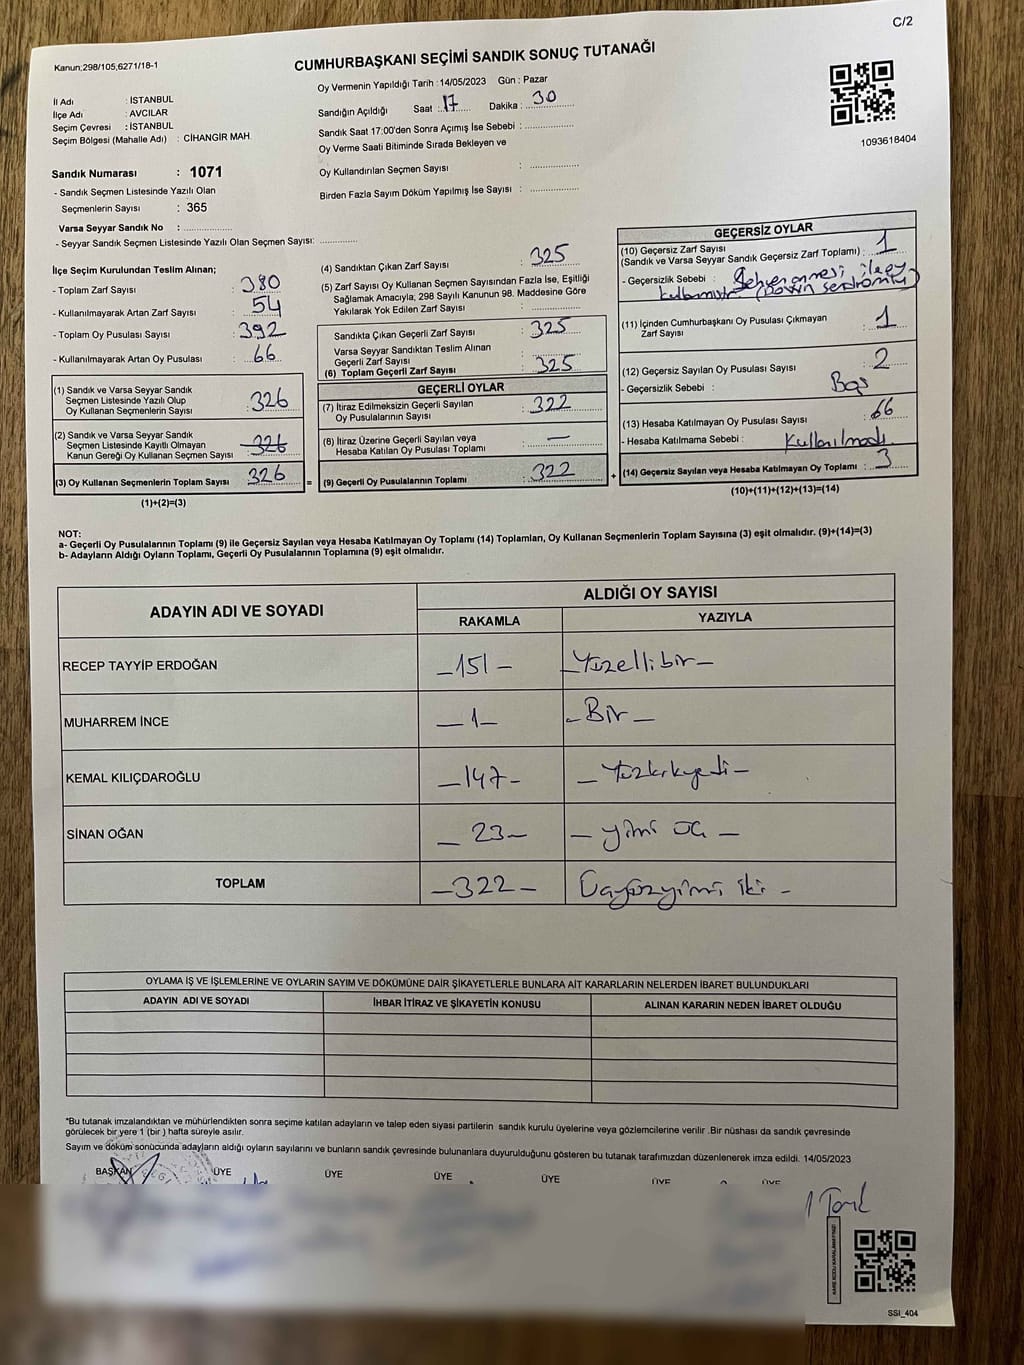 C/2
Kanun;298/105,6271/18-1
CUMHURBAŞKANI SEÇİMİ SANDIK SONUÇ TUTANAĞI
İl Adı : İSTANBUL
İlçe Adı : AVCILAR
Seçim Çevresi : İSTANBUL
Seçim Bölgesi (Mahalle Adı) : CİHANGİR MAH.
Oy Vermenin Yapıldığı Tarih : 14/05/2023 Gün : Pazar
Sandığın Açıldığı Saat : 17 Dakika : 30
Sandık Saat 17:00'den Sonra Açımış İse Sebebi :
Oy Verme Saati Bitiminde Sırada Bekleyen ve
Oy Kullandırılan Seçmen Sayısı :
Birden Fazla Sayım Döküm Yapılmış İse Sayısı :
1093618404
Sandık Numarası : 1071
- Sandık Seçmen Listesinde Yazılı Olan
Seçmenlerin Sayısı : 365
Varsa Seyyar Sandık No :
- Seyyar Sandık Seçmen Listesinde Yazılı Olan Seçmen Sayısı:
İlçe Seçim Kurulundan Teslim Alınan;
- Toplam Zarf Sayısı : 380
- Kullanılmayarak Artan Zarf Sayısı : 54
- Toplam Oy Pusulası Sayısı : 392
- Kullanılmayarak Artan Oy Pusulası : 66
(1) Sandık ve Varsa Seyyar Sandık
Seçmen Listesinde Yazılı Olup
Oy Kullanan Seçmenlerin Sayısı : 326
(2) Sandık ve Varsa Seyyar Sandık
Seçmen Listesinde Kayıtlı Olmayan
Kanun Gereği Oy Kullanan Seçmen Sayısı : 326
(3) Oy Kullanan Seçmenlerin Toplam Sayısı : 326 =
(1)+(2)=(3)
(4) Sandıktan Çıkan Zarf Sayısı : 325
(5) Zarf Sayısı Oy Kullanan Seçmen Sayısından Fazla İse, Eşitliği
Sağlamak Amacıyla; 298 Sayılı Kanunun 98. Maddesine Göre
Yakılarak Yok Edilen Zarf Sayısı :
Sandıkta Çıkan Geçerli Zarf Sayısı : 325
Varsa Seyyar Sandıktan Teslim Alınan
Geçerli Zarf Sayısı :
(6) Toplam Geçerli Zarf Sayısı : 325
GEÇERLİ OYLAR
(7) İtiraz Edilmeksizin Geçerli Sayılan
Oy Pusulalarının Sayısı : 322
(8) İtiraz Üzerine Geçerli Sayılan veya
Hesaba Katılan Oy Pusulası Toplamı : —
(9) Geçerli Oy Pusulalarının Toplamı : 322 +
GEÇERSİZ OYLAR
(10) Geçersiz Zarf Sayısı
(Sandık ve Varsa Seyyar Sandık Geçersiz Zarf Toplamı) : 1
- Geçersizlik Sebebi :
(11) İçinden Cumhurbaşkanı Oy Pusulası Çıkmayan
Zarf Sayısı : 1
(12) Geçersiz Sayılan Oy Pusulası Sayısı : 2
- Geçersizlik Sebebi : Boş
(13) Hesaba Katılmayan Oy Pusulası Sayısı : 66
- Hesaba Katılmama Sebebi : Kullanılmadı
(14) Geçersiz Sayılan veya Hesaba Katılmayan Oy Toplamı : 3
(10)+(11)+(12)+(13)=(14)
NOT:
a- Geçerli Oy Pusulalarının Toplamı (9) ile Geçersiz Sayılan veya Hesaba Katılmayan Oy Toplamı (14) Toplamları, Oy Kullanan Seçmenlerin Toplam Sayısına (3) eşit olmalıdır. (9)+(14)=(3)
b- Adayların Aldığı Oyların Toplamı, Geçerli Oy Pusulalarının Toplamına (9) eşit olmalıdır.
ADAYIN ADI VE SOYADI
ALDIĞI OY SAYISI
RAKAMLA YAZIYLA
RECEP TAYYİP ERDOĞAN –151– –Yüzellibir–
MUHARREM İNCE –1– –Bir–
KEMAL KILIÇDAROĞLU –147– –Yüzkırkyedi–
SİNAN OĞAN –23– –yimi üç–
TOPLAM –322– Üçyüzyimi iki –
OYLAMA İŞ VE İŞLEMLERİNE VE OYLARIN SAYIM VE DÖKÜMÜNE DAİR ŞİKAYETLERLE BUNLARA AİT KARARLARIN NELERDEN İBARET BULUNDUKLARI
ADAYIN ADI VE SOYADI İHBAR İTİRAZ VE ŞİKAYETİN KONUSU ALINAN KARARIN NEDEN İBARET OLDUĞU
*Bu tutanak imzalandıktan ve mühürlendikten sonra seçime katılan adayların ve talep eden siyasi partilerin sandık kurulu üyelerine veya gözlemcilerine verilir .Bir nüshası da sandık çevresinde
görülecek bir yere 1 (bir ) hafta süreyle asılır.
Sayım ve döküm sonucunda adayların aldığı oyların sayılarını ve bunların sandık çevresinde bulunanlara duyurulduğunu gösteren bu tutanak tarafımızdan düzenlenerek imza edildi. 14/05/2023
BAŞKAN ÜYE ÜYE ÜYE ÜYE ÜYE ÜYE
SSI_404